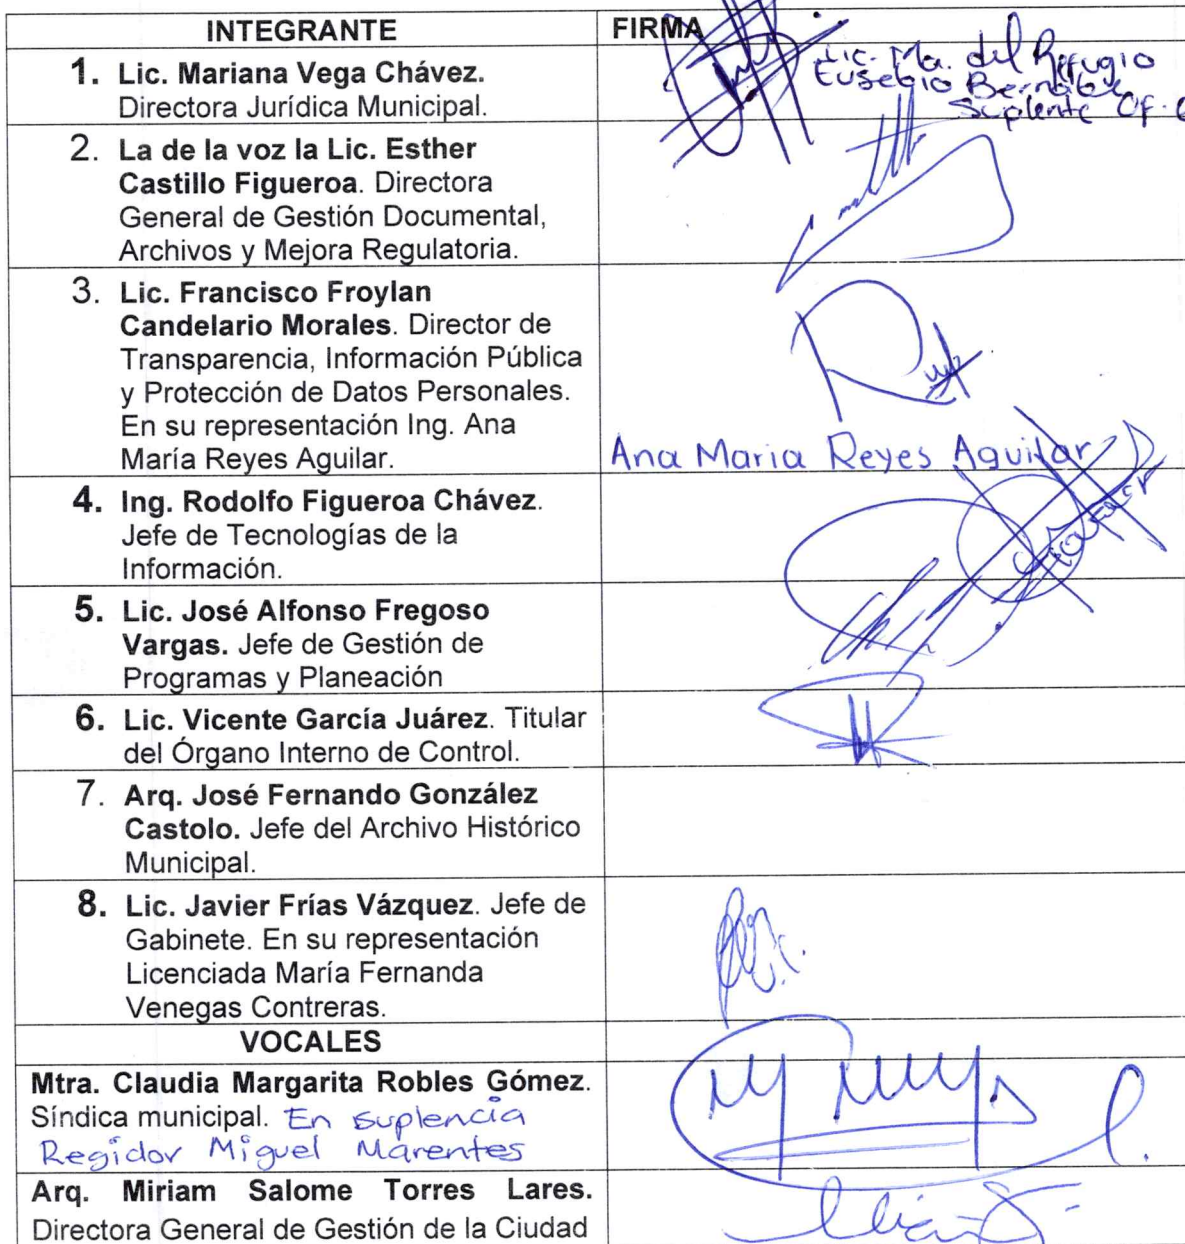 INTEGRANTE
FIRMA
1. Lic. Mariana Vega Chávez.
Directora Jurídica Municipal.
Lic. Ma. del Refugio
Eusebio Bernabe
Suplente Of.
2. La de la voz la Lic. Esther
Castillo Figueroa. Directora
General de Gestión Documental,
Archivos y Mejora Regulatoria.
3. Lic. Francisco Froylan
Candelario Morales. Director de
Transparencia, Información Pública
y Protección de Datos Personales.
En su representación Ing. Ana
María Reyes Aguilar.
Ana Maria Reyes Aguilar
4. Ing. Rodolfo Figueroa Chávez.
Jefe de Tecnologías de la
Información.
5. Lic. José Alfonso Fregoso
Vargas. Jefe de Gestión de
Programas y Planeación
6. Lic. Vicente García Juárez. Titular
del Órgano Interno de Control.
7. Arq. José Fernando González
Castolo. Jefe del Archivo Histórico
Municipal.
8. Lic. Javier Frías Vázquez. Jefe de
Gabinete. En su representación
Licenciada María Fernanda
Venegas Contreras.
VOCALES
Mtra. Claudia Margarita Robles Gómez.
Síndica municipal. En suplencia
Regidor Miguel Marentes
Arq. Miriam Salome Torres Lares.
Directora General de Gestión de la Ciudad